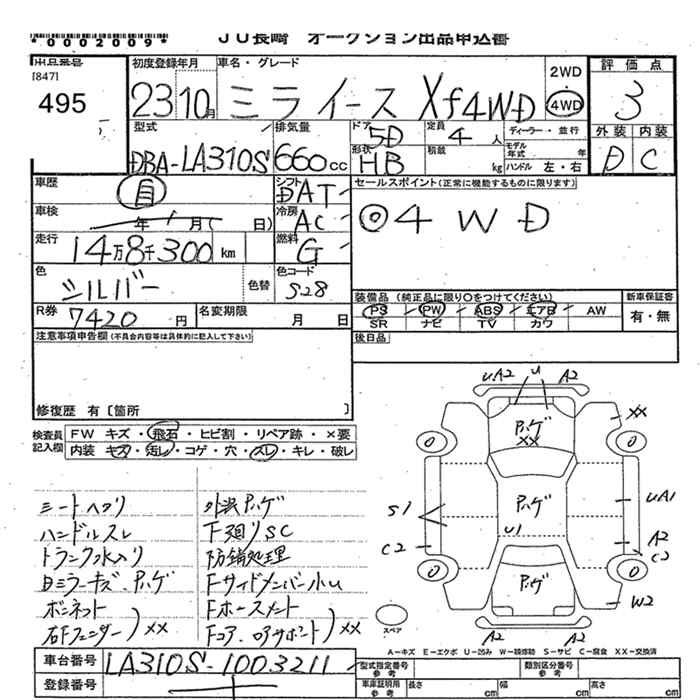 *0002009*
JU長崎 オークション出品申込書
出品番号
[847]
495
初度登録年月
23 10月
車名・グレード
ミライース Xf4WD
2WD
4WD
評価点
3
外装 内装
D C
型式
DBA-LA310S
排気量
660cc
ドア
5D
形状
HB
定員
4人
積載
kg
ディーラー・並行
モデル年式 年
ハンドル 左・右
車歴
自
車検
年 月( 日)
走行
14万8千300km
色
シルバー
色替
シフト
DAT
冷房
AC
燃料
G
色コード
S28
セールスポイント(正常に機能するものに限ります)
◎4WD
R券
7420円
名変期限
月 日
装備品(純正品に限り○をつけてください)
PS PW ABS エアB AW
SR ナビ TV カワ
新車保証書
有・無
後日品
注意事項申告欄(不具合内容等は具体的に記入して下さい)
修復歴 有[箇所 ]
検査員記入欄
FW キズ・飛石・ヒビ割・リペア跡・×要
内装 キズ・汚れ・コゲ・穴・スレ・キレ・破レ
シートヘタリ
ハンドルスレ
トランク水入り
ミラーキズ・ハゲ
ボンネット
右Fフェンダー)××
外装ハゲ
下廻りSC
防錆処理
Fサイドメンバー小U
Fホースメント
Fコア・ロアサポート)××
UA2 U A2
××
ハゲ
××
ハゲ
U1
ハゲ
S1
C2
UA1
A2
C2
W2
A2 A2
0 0
0 0
スペア
A－キズ E－エクボ U－凹み W－補修跡 S－サビ C－腐食 XX－交換済
車台番号
LA310S-1003211
登録番号
型式指定番号
参考
類別区分番号
参考
車庫証明用
参考
長さ cm
幅 cm
高さ cm